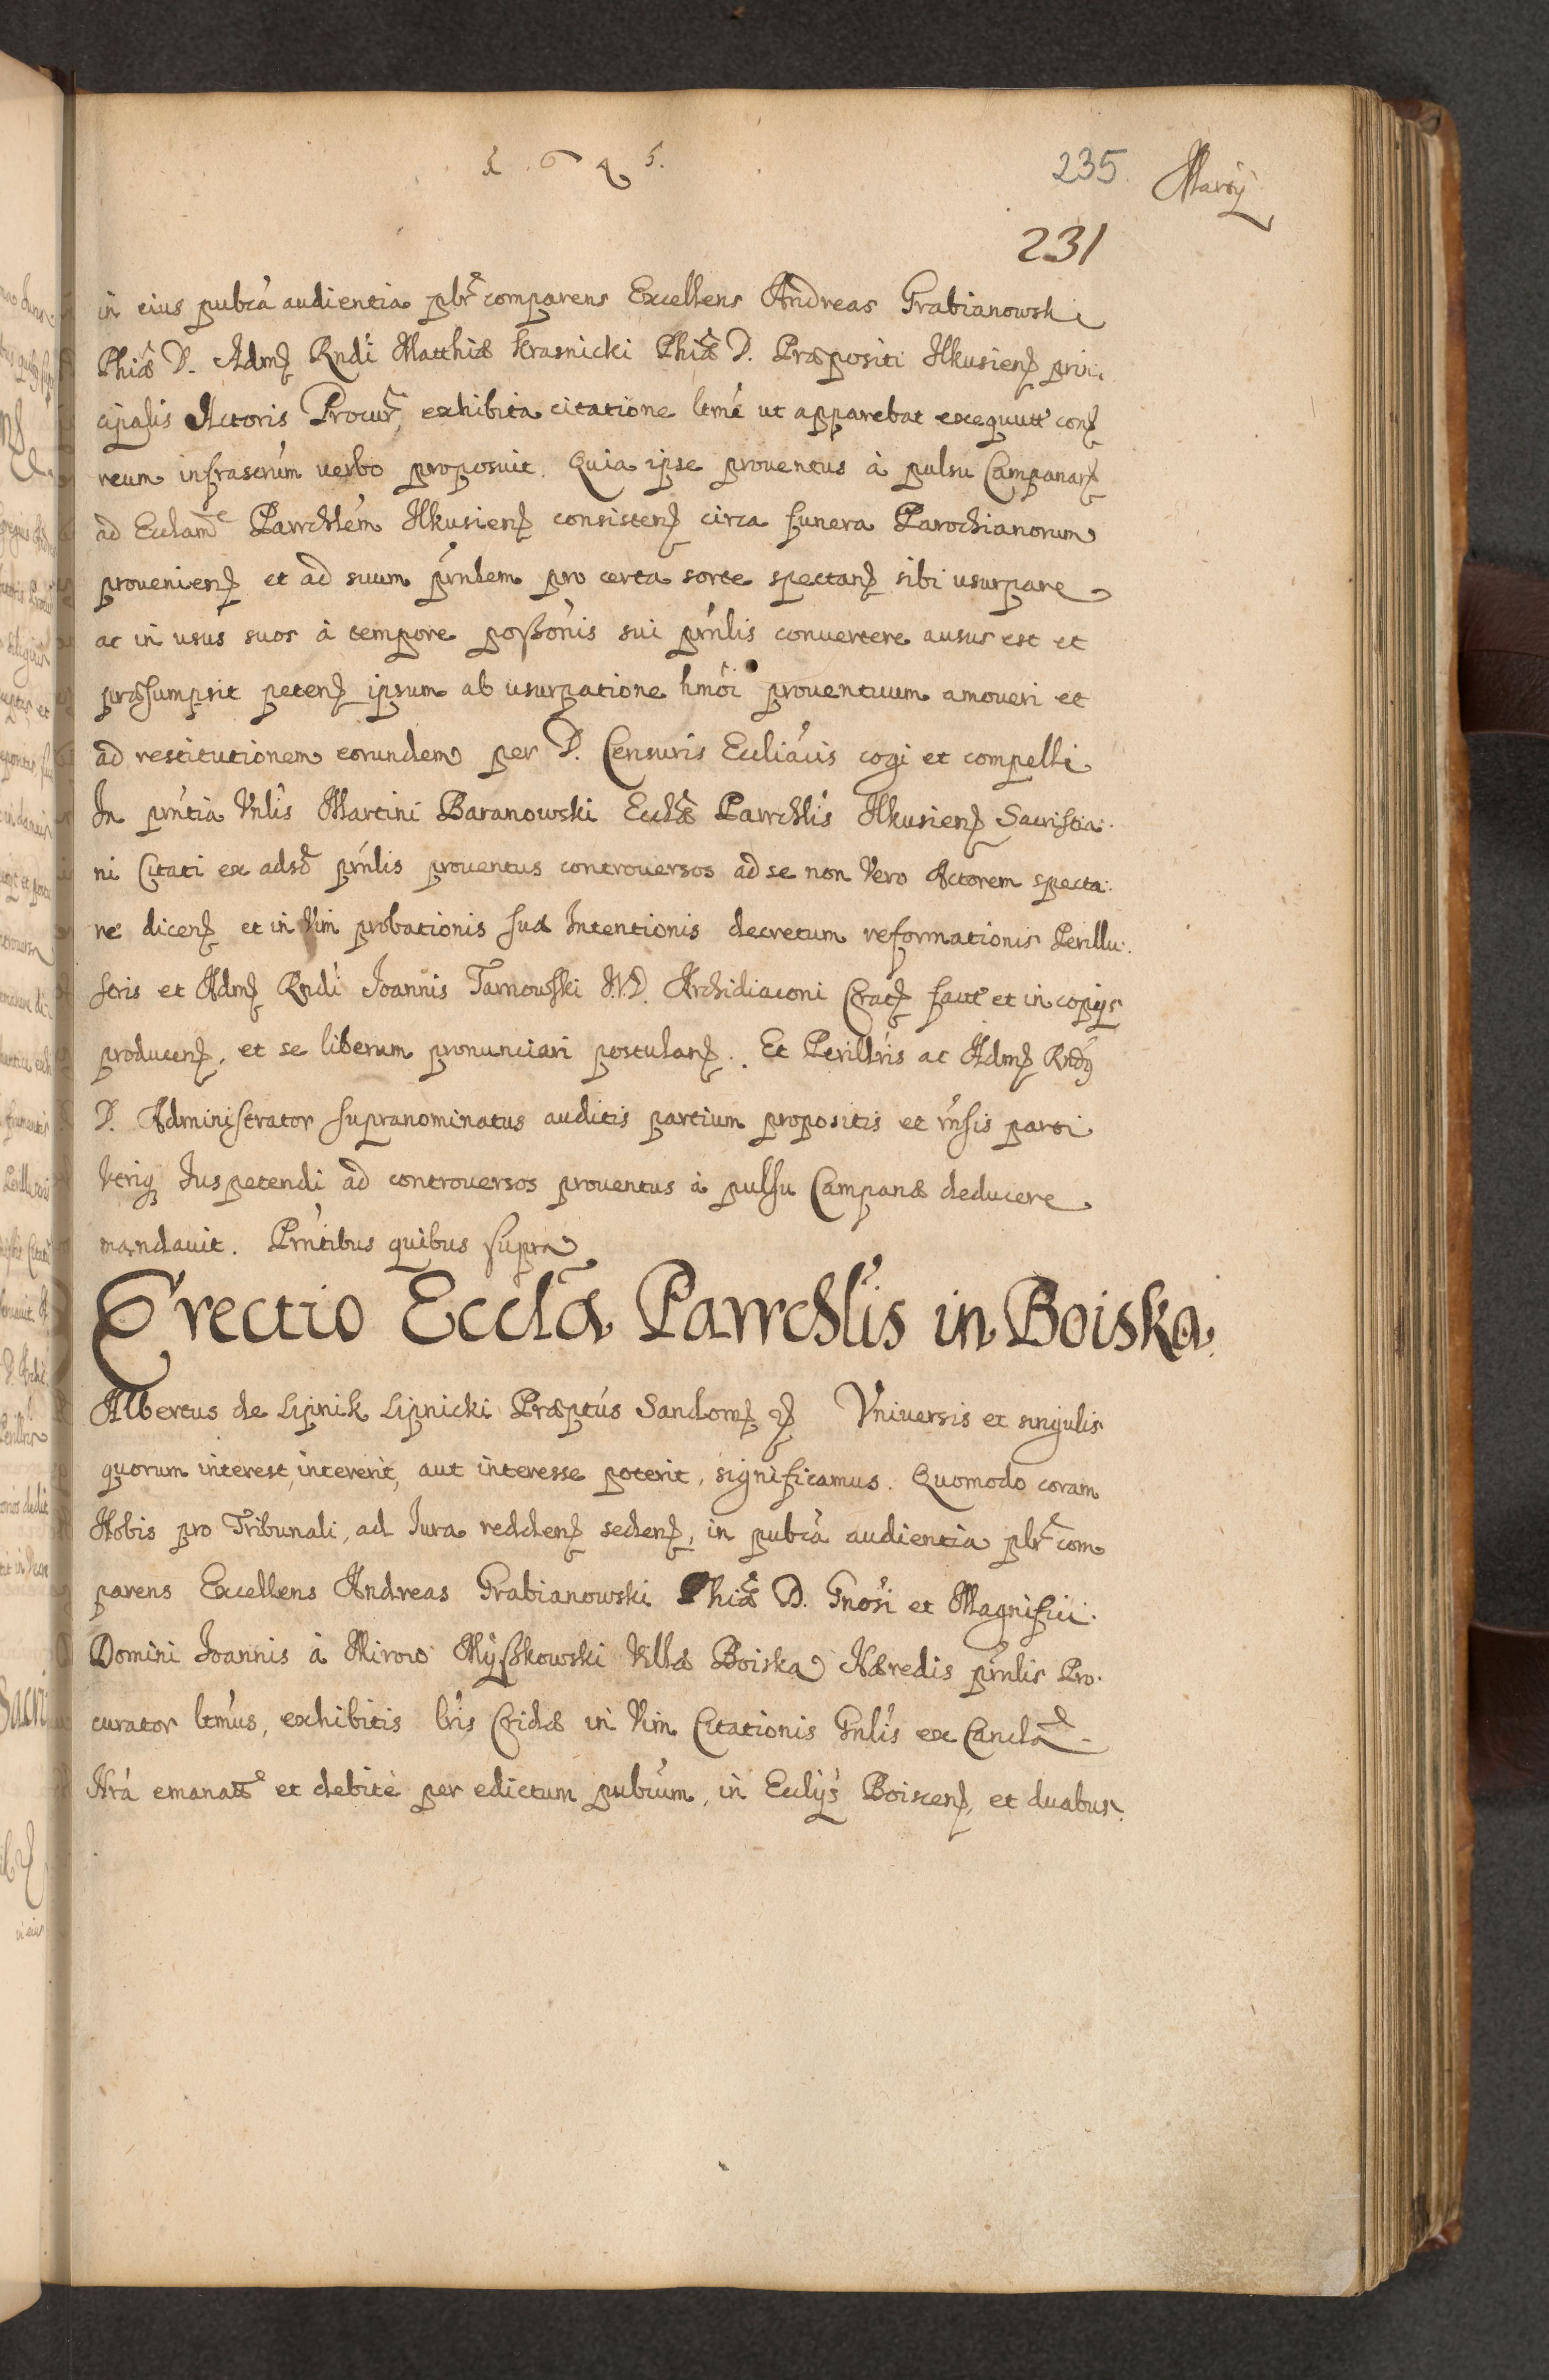 1 6 4 5.
235. Martij
231
in eius pubcâ audientia plr comparens Excellens Andreas Grabianowski
Phiæ D. Adm Rndi Matthiæ Krasnicki Phiæ D. Præpositi Ilkusien prin:
cipalis Actoris Procur, exhibita citatione ltmé ut apparebat exequutt con
reum infrascrúm verbo proposuit. Quia ipse proventus à pulsu Campanar
ad Ecclam Parrchlém Ilkusien consisten circa funera Parochianorum
provenien et ad suum prńlem pro certa sorte spectan sibi usurpare
ac in usus suos à tempore possońis sui prńlis convertere ausus est et
præsumpsit peten ipsum ab usurpatione hmoi proventuum amoveri et
ad restitutionem eorundem per D. Censuris Eccliaćis cogi et compelli
In prńtia Vnlis Martini Baranowski Ecclæ Parrchlis Ilkusien Sacristia:
ni Citati ex adsd prńlis proventus controversos ad se non Vero Actorem specta:
re dicen et in Vim probationis suæ Intentionis decretum reformationis Perillu:
stris et Adm Rndi Joannis Tarnowski I.V.D. Archidiaconi Crac fact et in copijs
producen, et se liberum pronunciari postulan. Et Perillris ac Adm Rndus
D. Administrator supranominatus auditis partium propositis et rńsis parti
Vtriq Ius petendi ad controversos proventus à pulsu Campanæ deducere
mandavit. Prńtibus quibus supra
Erectio Ecclæ Parrchlis in Boiska.
Albertus de Lipnik Lipnicki Præptús Sandom Vniversis et singulis
quorum interest, intererit, aut interesse poterit, significamus. Quomodo coram
Nobis pro Tribunali, ad Iura redden seden, in pubcâ audientia plr com
parens Excellens Andreas Grabianowski Phiæ D. Gnosi et Magnifici
Domini Joannis à Mirow Myszkowski Villæ Boiska Hæredis prńlis Pro:
curator ltmús, exhibitis lris Cridæ in Vim Citationis Gnlis ex Canclâ
Nrá emanatt et debitè per edictum pubcúm, in Ecclijs Boiscen, et duabus